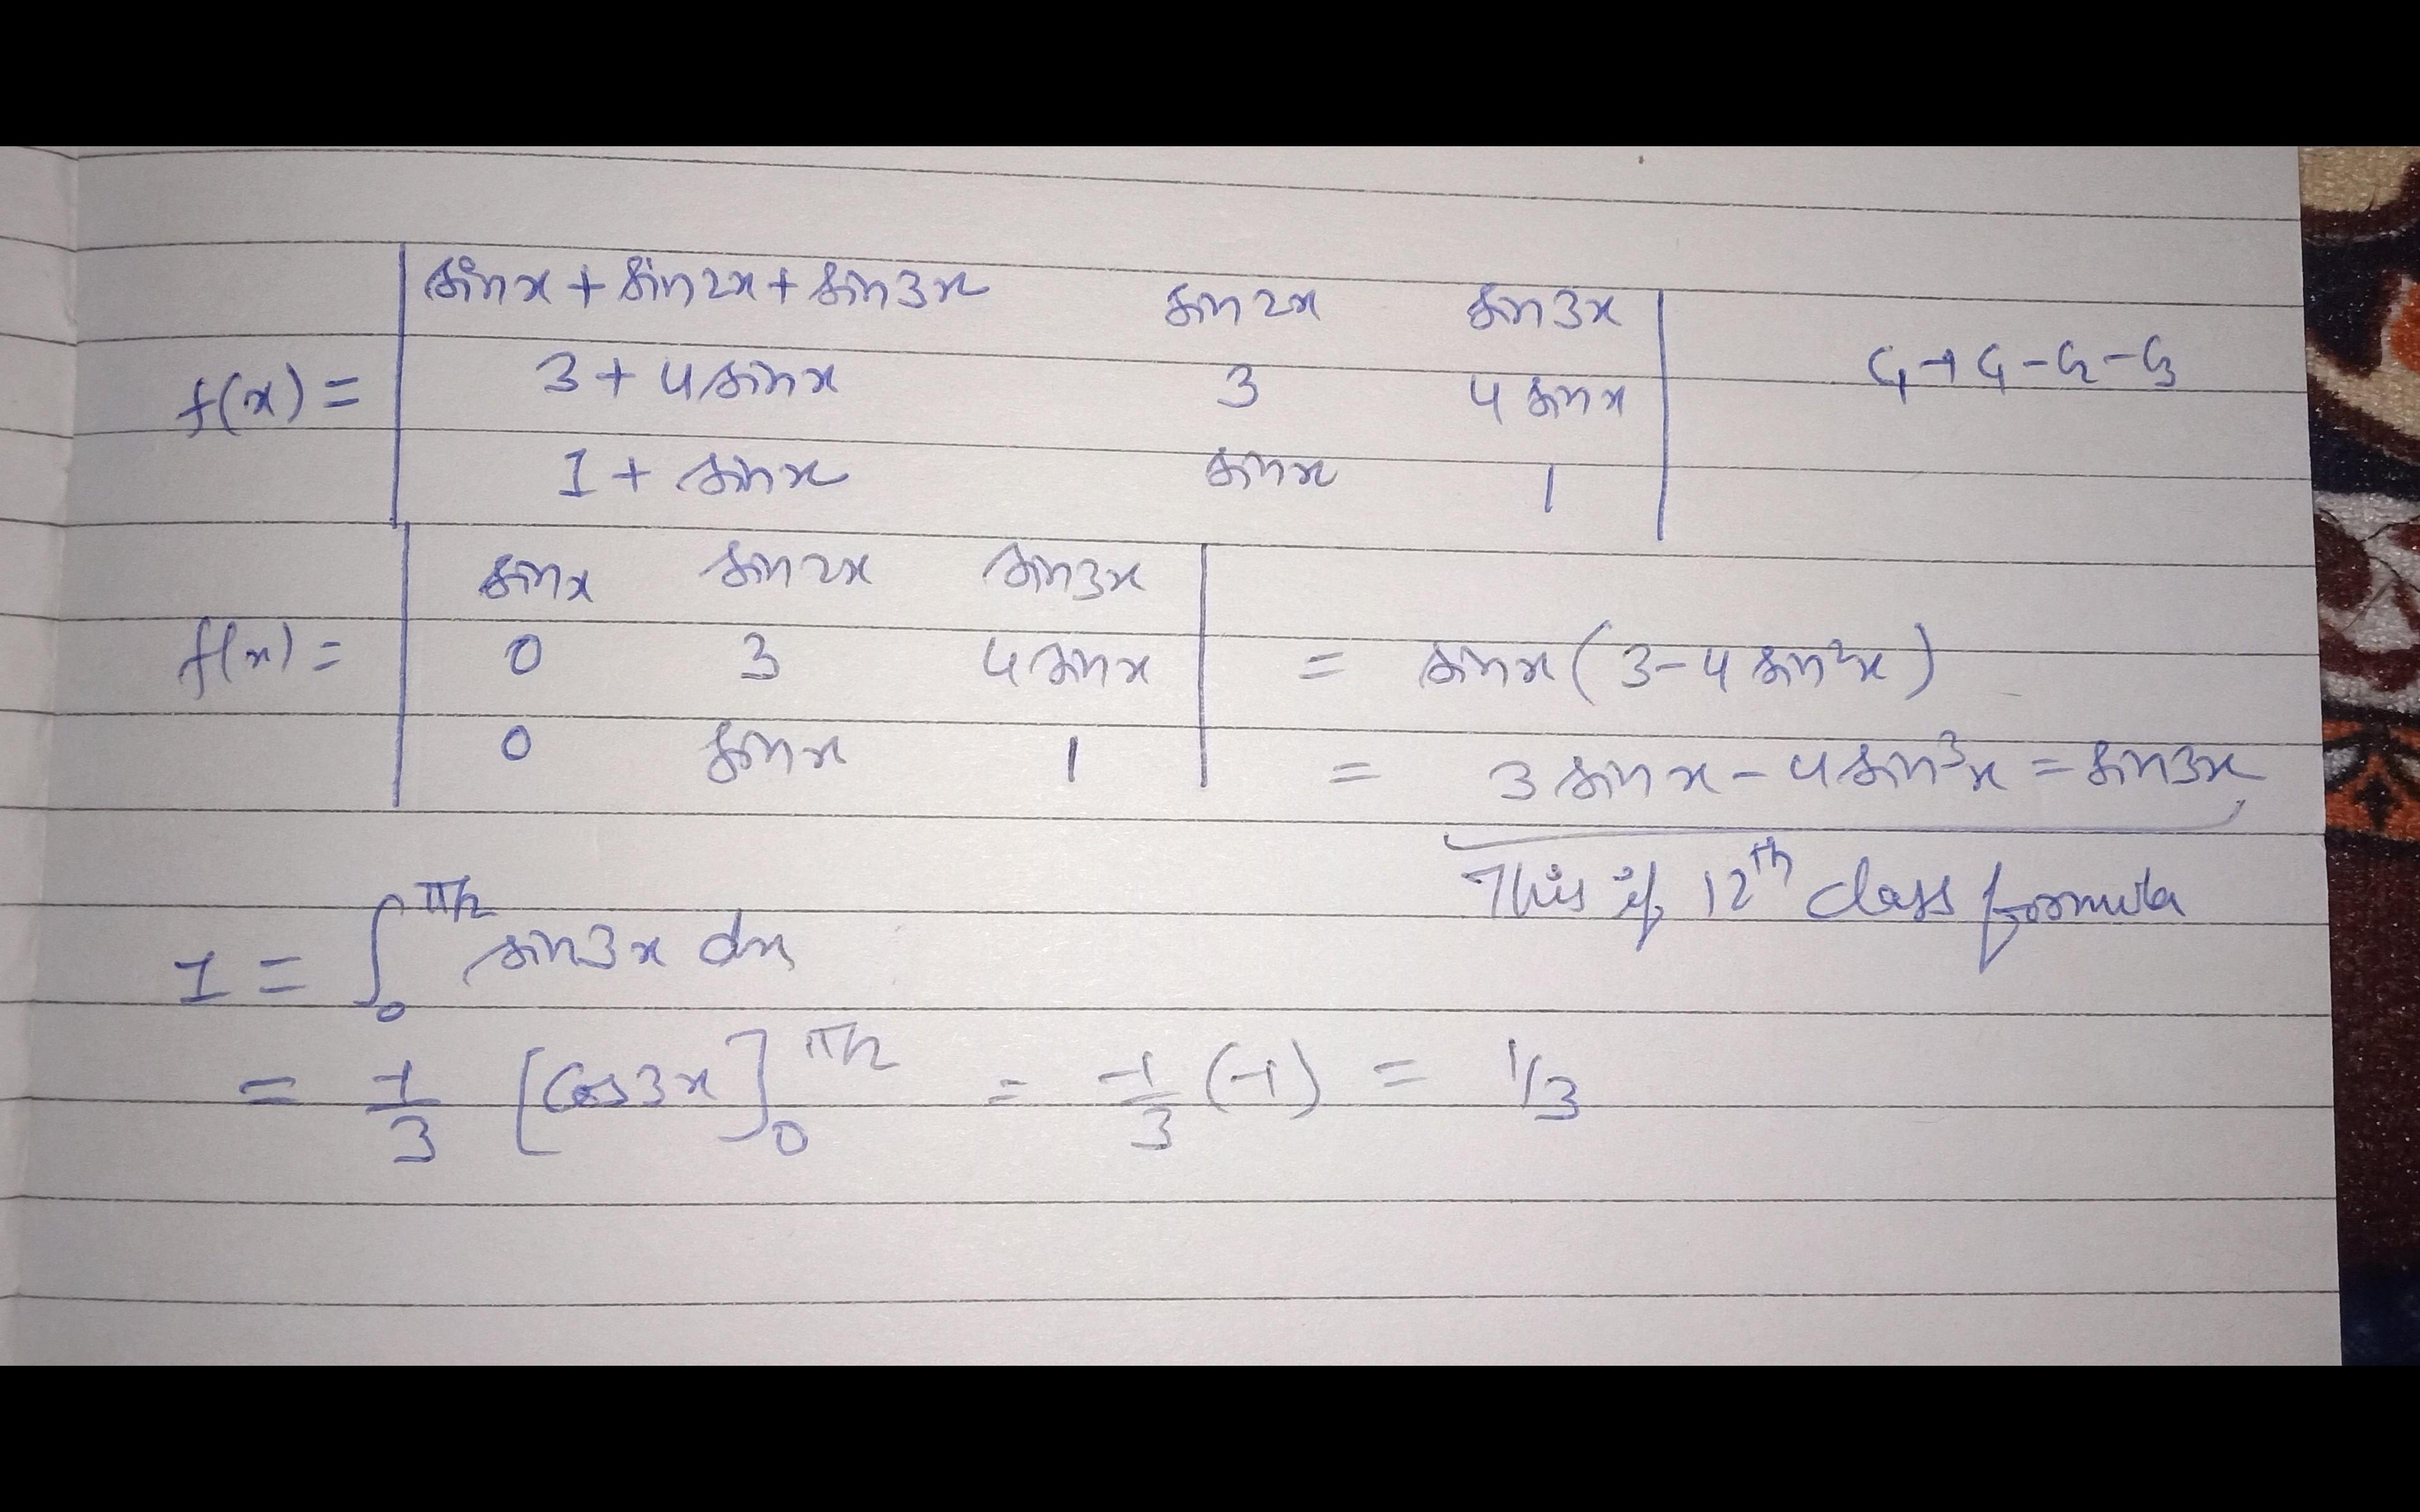 sinx + sin2x + sin3x sin2x sin3x
f(x) = 3 + 4sinx 3 4sinx C₁→C₁-C₂-C₃
1 + sinx sinx 1
sinx sin2x sin3x
f(x) = 0 3 4sinx = sinx(3-4sin²x)
0 sinx 1 = 3sinx - 4sin³x = sin3x
This is 12th class formula
I = ∫₀^π/2 sin3x dx
= -1/3 [Cos3x]₀^π/2 = -1/3 (-1) = 1/3